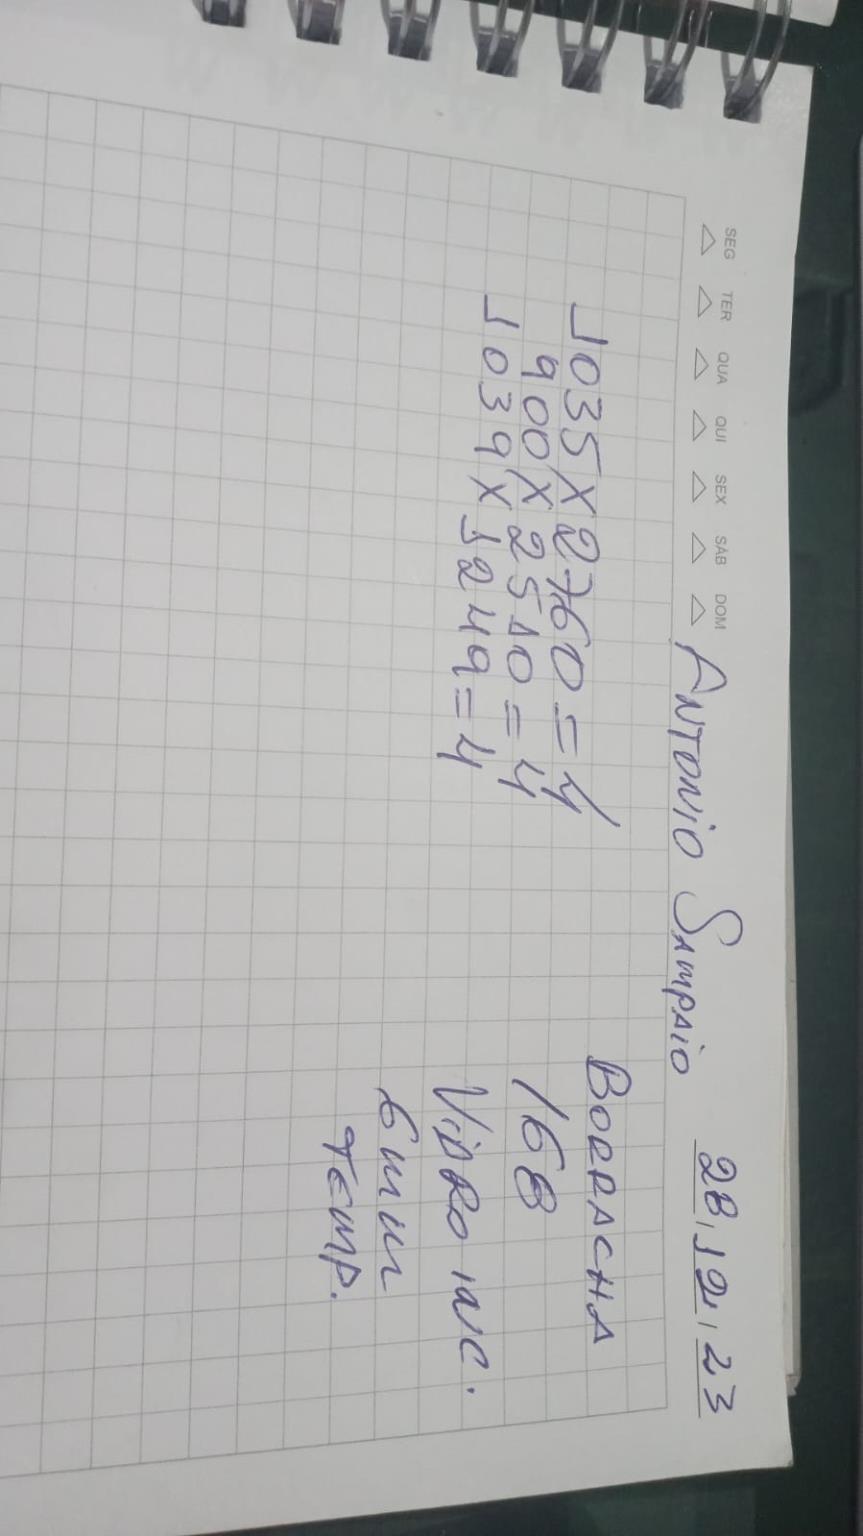 SEG TER QUA QUI SEX SÁB DOM
ANTONIO SAMPAIO 28, 12, 23
1035 X 2760 = 4
900 X 2510 = 4
1039 X 1249 = 4
BORRACHA
168
VIDRO INC.
6 mm
TEMP.